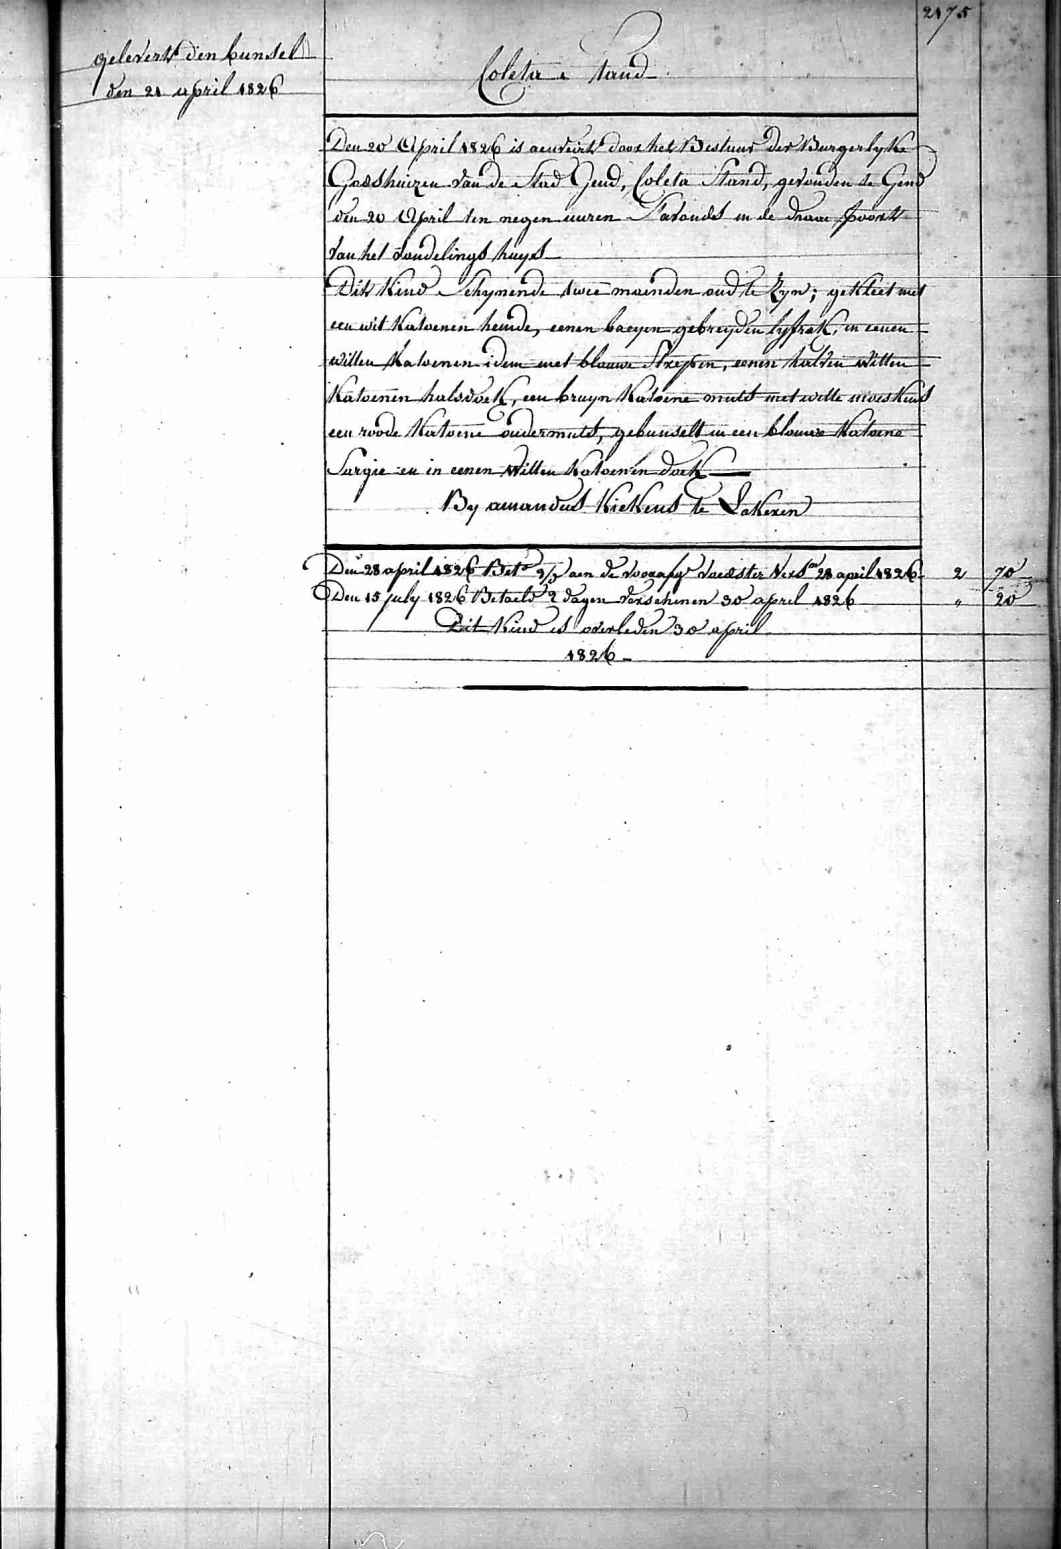 2175
gelevert den bunsel
den 21 april 1826
Coleta Stand
Den 20 April 1826 is aenveirt door het Bestuur der Burgerlyke
Godshuizen van de Stad Gend, Coleta Stand, gevonden te Gend
den 20 April ten negen uuren S'avonds in de draai poort
van het vondelings huys
Dit Kind Schynende twee mainden oud te Zyn; gekleet met
een wit Katoenen hemde, eenen baeyen gebreyden lyfrok, in eenen
witten Katoenen idem met blauwe Strepen, eenen halven witten
Katoenen halsdoek, een bruyn Katoene muts met witte moeskens
een roode Katoene ondermuts, gebunselt in een blauwe Katoene
Sargie en in eenen Witten Katoenen doek
By amandus Kiekens te Lokeren
Den 28 april 1826 Bet. aen de voorafg. Voedster Vers. 28 april 1826 2 70
Den 15 july 1826 Betaeld 2 dagen verschenen 30 april 1826 " 20
Dit Kind is overleden 30 april
1826